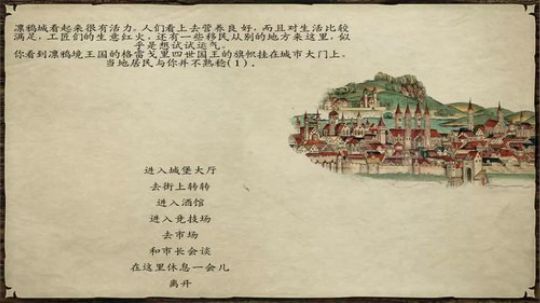 凛鸦城看起来很有活力。人们看上去营养良好,而且对生活比较
满足,工匠们的生意红火,还有一些移民从别的地方来这里,似
乎是想试试运气。
你看到凛鸦境王国的格雷戈里四世国王的旗帜挂在城市大门上。
当地居民与你并不熟稔(1)。
进入城堡大厅
去街上转转
进入酒馆
进入竞技场
去市场
和市长会谈
在这里休息一会儿
离开